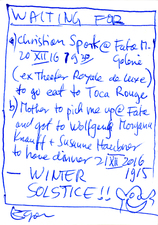 WAITING FOR
a) Christian Spork @ Fata M.
20 XII 16 1930 Galerie
(ex Theater Royale de Luxe)
to go eat to Toca Rouge
b) Mother to pick me up @ Fata
and got to Wolfgang Morgana
Knauff + Susanne Haubner
to have dinner 21 XII 2016
WINTER 1915
SOLSTICE!!